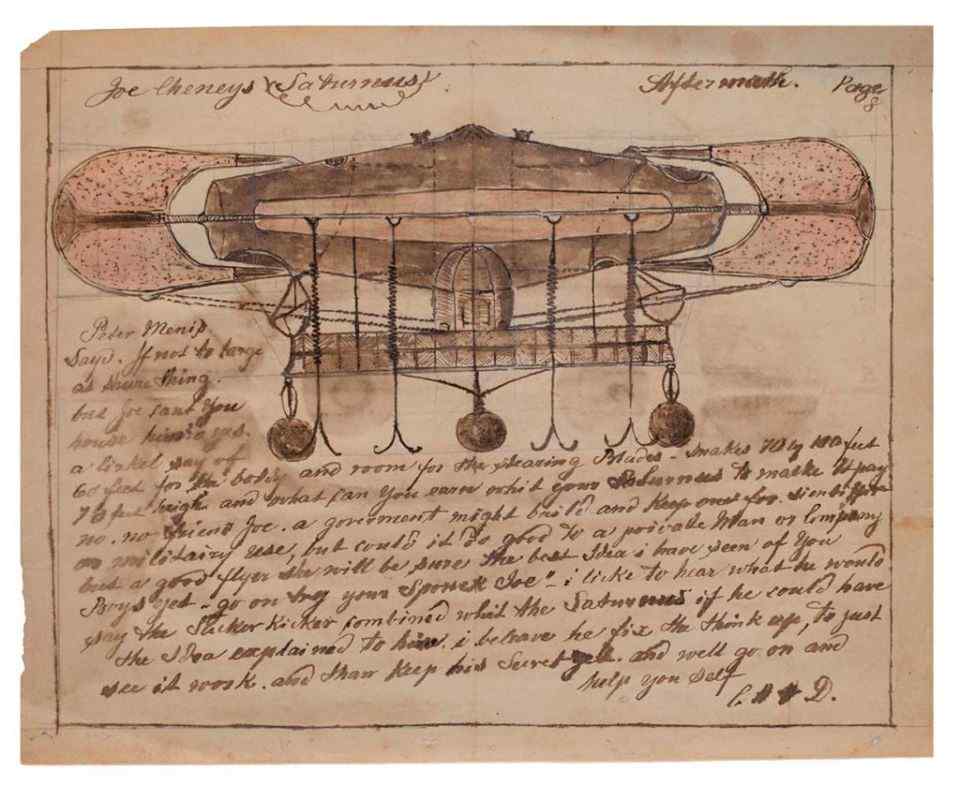 Joe Cheneys "Saturnus"
Aftermath.
Page
8
Peter Menis.
Says. If not to large
a shure thing.
but Joe cant You
house him o yes.
a litkel say of
60 feet for the body and room for the stearing Blades - makes by 100 feet
70 feet high and what can You earn whit your Saturnus to make It pay
no. no friend Joe. a goverment might build and Keep one for
or militairy use, but could it do good to a private Man or Company
but a good flyer she will be sure the best Idea i have seen of You
Boys yet - go on try your Joe" - i licke to hear what he would
say the combined whit the Saturnus if he could have
the Idea explained to him. i beleave he fix the think up, to just
see it work. and than Keep his Secret yet. and well go on and
help you self
D.